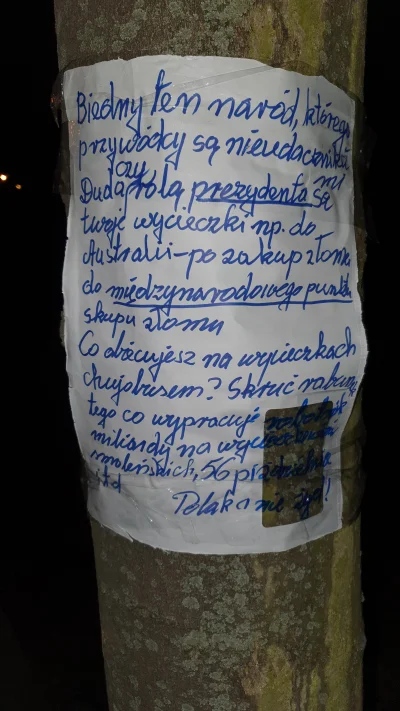 Biedny ten naród, którego
przywódcy są nieudacznika
mi
czy
Duda, rolą prezydenta są
twoje wycieczki np. do
Australii - po zakup złomu
do międzynarodowego punktu
skupu złomu
Co obiecujesz na wycieczkach
chujobusem? Skruć rabunę
tego co wypracuje
miliardy na
smoleńskich, 56
itd
Polak a nie żyd!